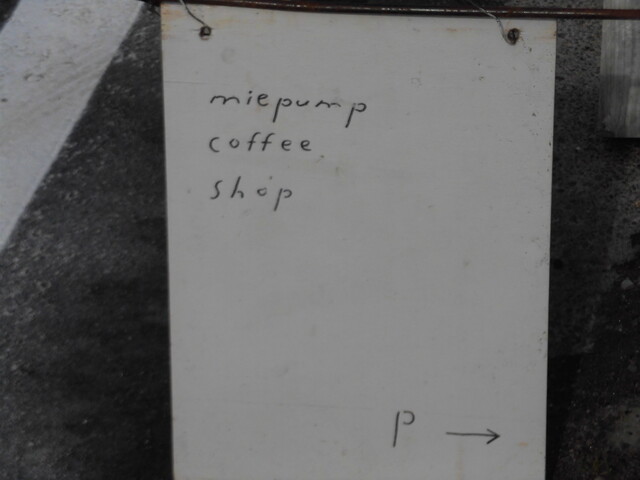 miepump
coffee
shop
P →